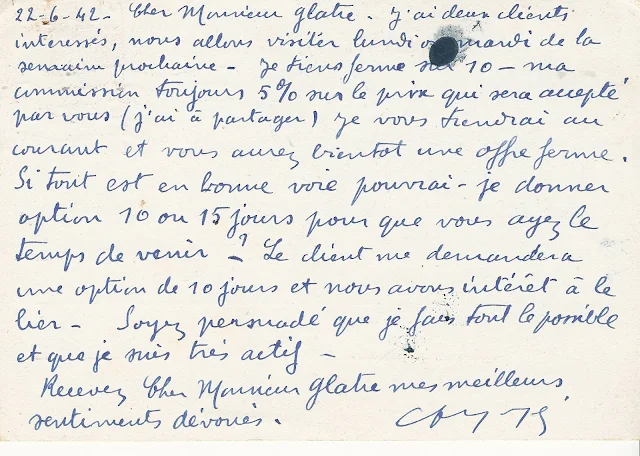 22-6-42 - Cher Monsieur Glatre. J'ai deux clients
interessés, nous allons visiter lundi ou mardi de la
semaine prochaine - Je tiens ferme sur 10 - ma
commission toujours 5% sur le prix qui sera accepté
par vous (j'ai à partager) Je vous tiendrai au
courant et vous aurez bientot une offre ferme.
Si tout est en bonne voie pourrai-je donner
option 10 ou 15 jours pour que vous ayez le
temps de venir - ? Le client me demandera
une option de 10 jours et nous avons intérêt à le
lier - Soyez persuadé que je fais tout le possible
et que je suis très actif -
Recevez Cher Monsieur Glatre mes meilleurs
sentiments dévoués.